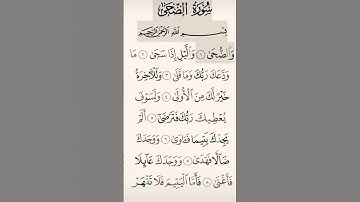 سُورَةُ الضُّحَى
بِسْمِ اللَّهِ الرَّحْمَٰنِ الرَّحِيمِ
وَالضُّحَىٰ ١ وَالَّيْلِ إِذَا سَجَىٰ ٢ مَا
وَدَّعَكَ رَبُّكَ وَمَا قَلَىٰ ٣ وَلَلْآخِرَةُ
خَيْرٌ لَّكَ مِنَ الْأُولَىٰ ٤ وَلَسَوْفَ
يُعْطِيكَ رَبُّكَ فَتَرْضَىٰ ٥ أَلَمْ
يَجِدْكَ يَتِيمًا فَآوَىٰ ٦ وَوَجَدَكَ
ضَالًّا فَهَدَىٰ ٧ وَوَجَدَكَ عَائِلًا
فَأَغْنَىٰ ٨ فَأَمَّا الْيَتِيمَ فَلَا تَقْهَرْ